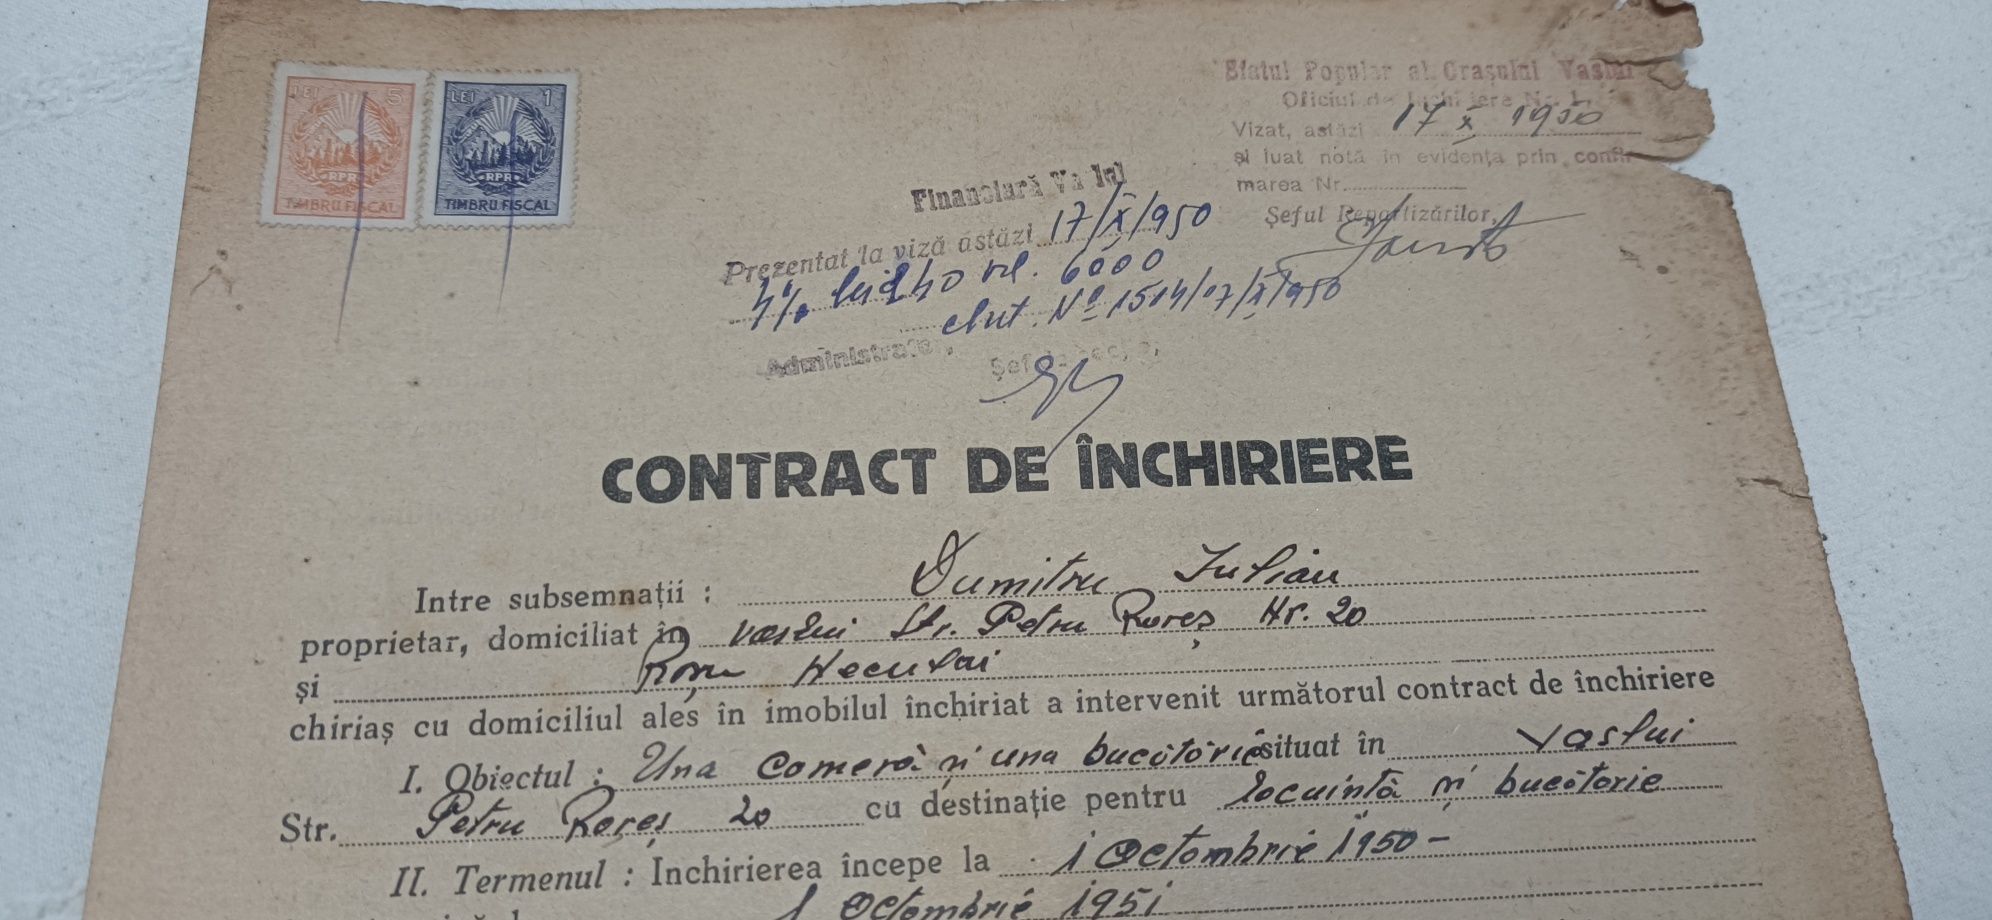 LEI 5
RPR
TIMBRU FISCAL
LEI 1
RPR
TIMBRU FISCAL
Sfatul Popular al Orașului Vaslui
Oficiul de Inchiriere No. 1.
Vizat, astăzi 17 X 1950
și luat notă în evidența prin confir
marea Nr.
Șeful Repartizărilor,
Financiară Vaslui
Prezentat la viză astăzi 17/X/950
4% lei 240 vl. 6000
chit. Nº 1514/17/X/950
Administrator,
CONTRACT DE ÎNCHIRIERE
Intre subsemnații : Dumitru Iulian
proprietar, domiciliat în Vaslui Str. Petru Rareș Nr. 20
și Roșu Neculai
chiriaș cu domiciliul ales în imobilul închiriat a intervenit următorul contract de închiriere
I. Obiectul : Una cameră și una bucătărie situat în Vaslui
Str. Petru Rareș 20 cu destinație pentru locuință și bucătărie
II. Termenul : Inchirierea începe la 1 Octombrie 1950 -
1 Octombrie 1951